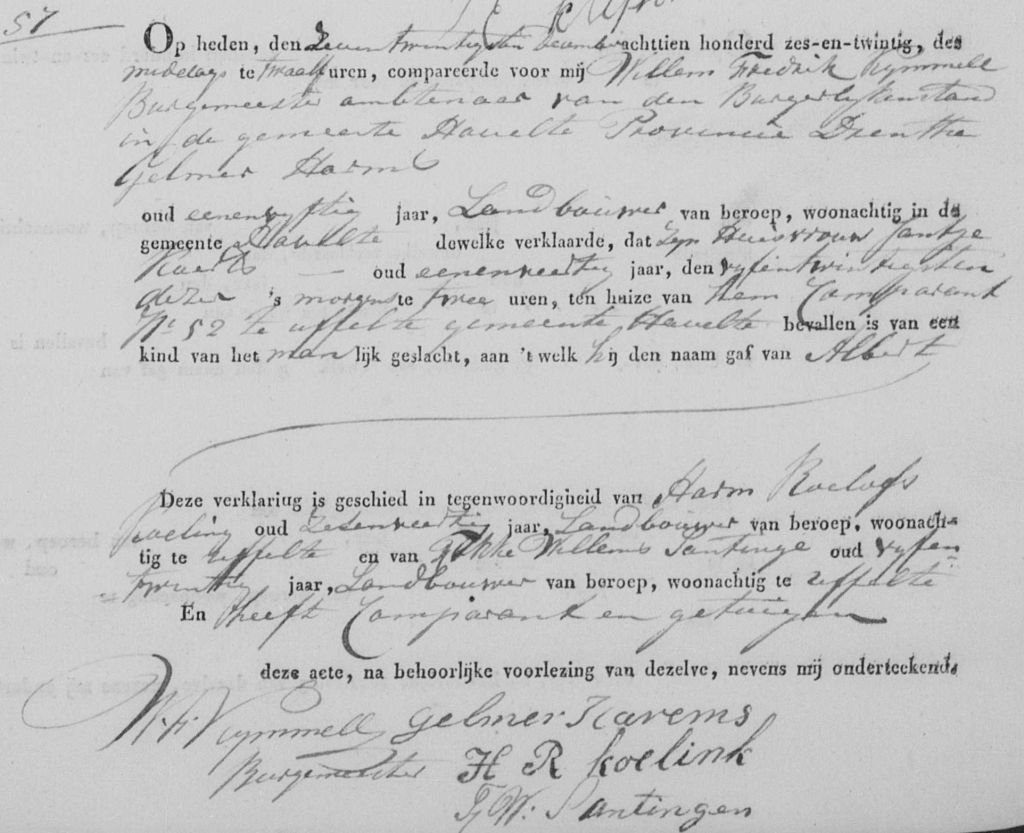 57
Op heden, den Zevenentwintigsten december achttien honderd zes-en-twintig, des
middags te twaalf uren, compareerde voor mij Willem Fredrik Kymmell
Burgemeester ambtenaar van den Burgerlykenstand
in de gemeente Havelte Provincie Drenthe
Gelmer Harms
oud eenenvyftig jaar, Landbouwer van beroep, woonachtig in de
gemeente Havelte dewelke verklaarde, dat Zyn Huisvrouw Jantje
Roelofs — oud eenenveertig jaar, den vyfentwintigsten
dezer 's morgens te twee uren, ten huize van hem Comparant
No 52 te uffelte gemeente Havelte bevallen is van een
kind van het manlijk geslacht, aan 't welk hij den naam gaf van Albert
Deze verklaring is geschied in tegenwoordigheid van Harm Roelofs
Koeling oud zesenveertig jaar, Landbouwer van beroep, woonach-
tig te uffelte en van Willems Santinge oud vyfen-
twintig jaar, Landbouwer van beroep, woonachtig te uffelte
En heeft Comparant en getuigen
deze acte, na behoorlijke voorlezing van dezelve, nevens mij onderteekend.
W. F. Kymmell gelmer Harems
Burgemeester H R koelink
W. Santingen